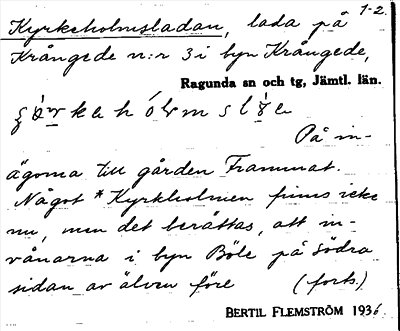 1-2.
Kyrkeholmsladan, lada på
Krångede n:r 3 i byn Krångede,
Ragunda sn och tg, Jämtl. län.
På in-
ägorna till gården Frammat.
Något *Kyrkholmen finns icke
nu, men det berättas, att in-
vånarna i byn Böle på södra
sidan av älven före (forts.)
BERTIL FLEMSTRÖM 1936.